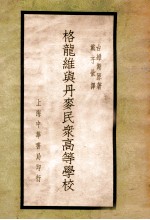 古楳衡原著
戴子欽譯
格龍維與丹麥民衆高等學校
上海中華書局印行